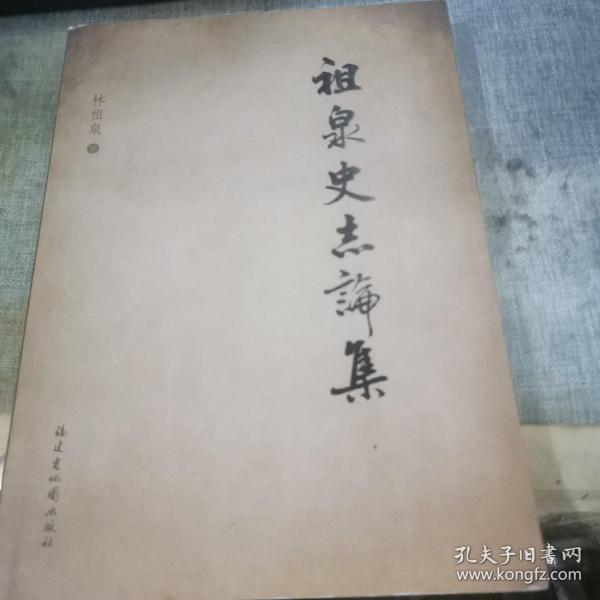 祖泉史志論集
林祖泉
福建省地图出版社
孔夫子旧书网
www.kongfz.com